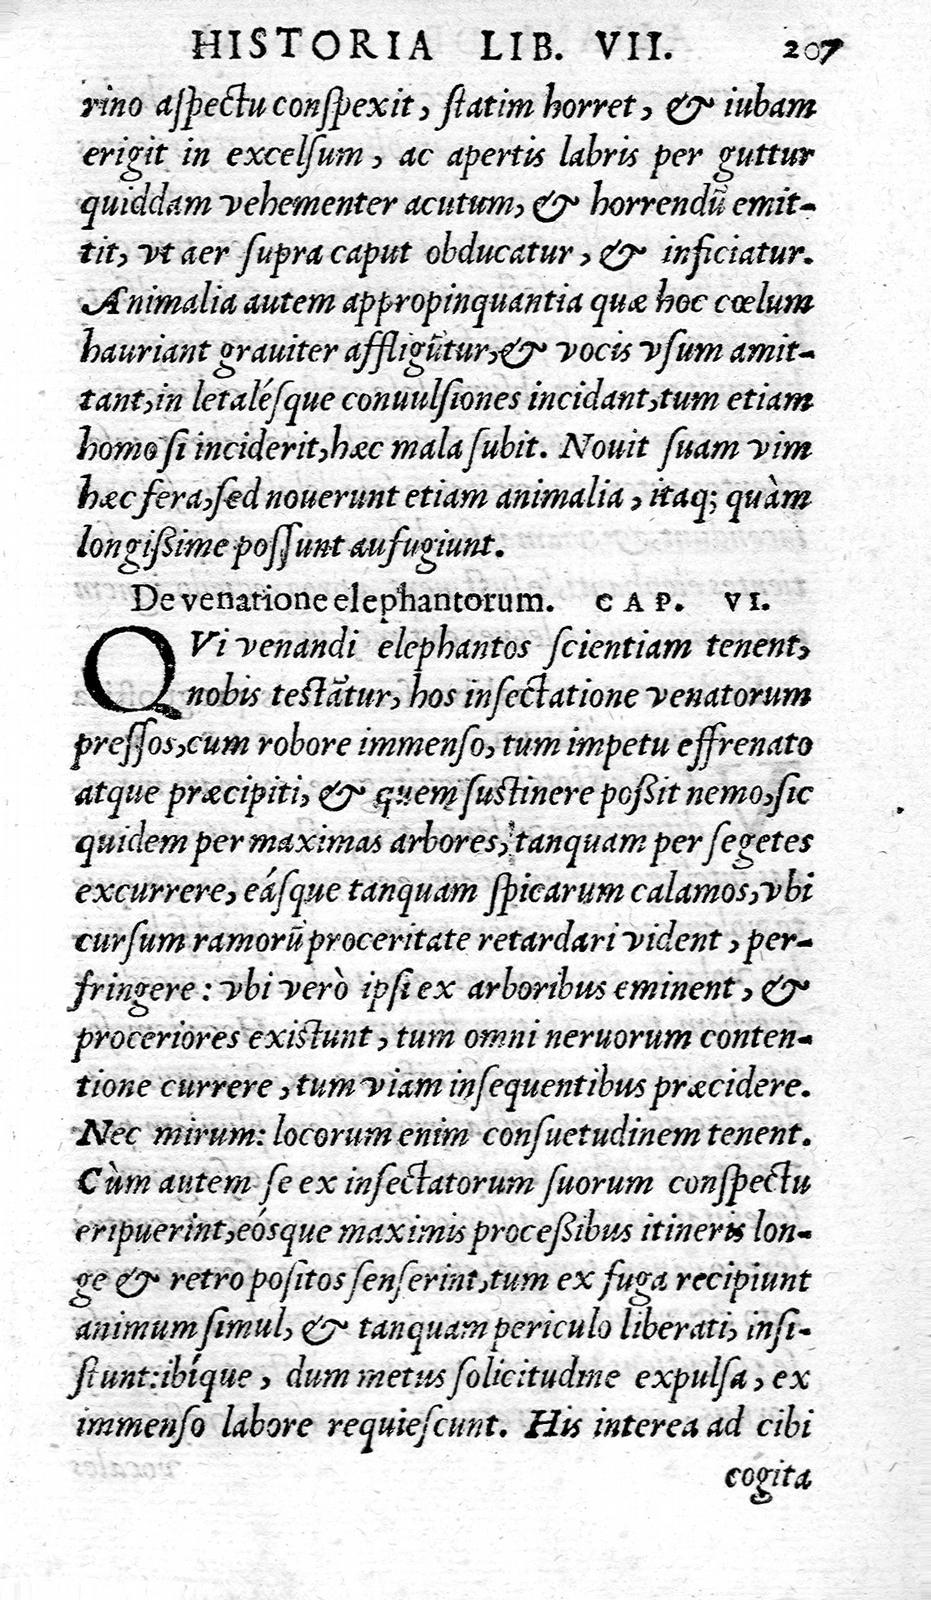 HISTORIA LIB. VII. 207
rino aſpectu conſpexit, ſtatim horret, & iubam
erigit in excelſum, ac apertis labris per guttur
quiddam vehementer acutum, & horrendū emit-
tit, vt aer ſupra caput obducatur, & inficiatur.
Animalia autem appropinquantia quæ hoc cœlum
hauriant grauiter affligūtur, & vocis vſum amit-
tant, in letaléſque conuulſiones incidant, tum etiam
homo ſi inciderit, hæc mala ſubit. Nouit ſuam vim
hæc fera, ſed nouerunt etiam animalia, itaq; quàm
longißime poſſunt aufugiunt.
De venatione elephantorum. CAP. VI.
QVi venandi elephantos ſcientiam tenent,
nobis teſtātur, hos inſectatione venatorum
preſſos, cum robore immenſo, tum impetu effrenato
atque præcipiti, & quem ſuſtinere poßit nemo, ſic
quidem per maximas arbores, tanquam per ſegetes
excurrere, eáſque tanquam ſpicarum calamos, vbi
curſum ramorū proceritate retardari vident, per-
fringere: vbi verò ipſi ex arboribus eminent, &
proceriores exiſtunt, tum omni neruorum conten-
tione currere, tum viam inſequentibus præcidere.
Nec mirum: locorum enim conſuetudinem tenent.
Cùm autem ſe ex inſectatorum ſuorum conſpectu
eripuerint, eósque maximis proceßibus itineris lon-
ge & retro poſitos ſenſerint, tum ex fuga recipiunt
animum ſimul, & tanquam periculo liberati, inſi-
ſtunt: ibíque, dum metus ſolicitudine expulſa, ex
immenſo labore requieſcunt. His interea ad cibi
cogita